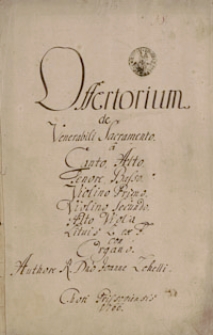 Offertorium
de
Venerabili Sacramento.
à
Canto, Alto,
Tenore, Basso.
Violino Primo,
Violino Secundo.
Alto Viola
Lituis 2 ex
con
Organo.
Authore R. Dno Joanne
Chori